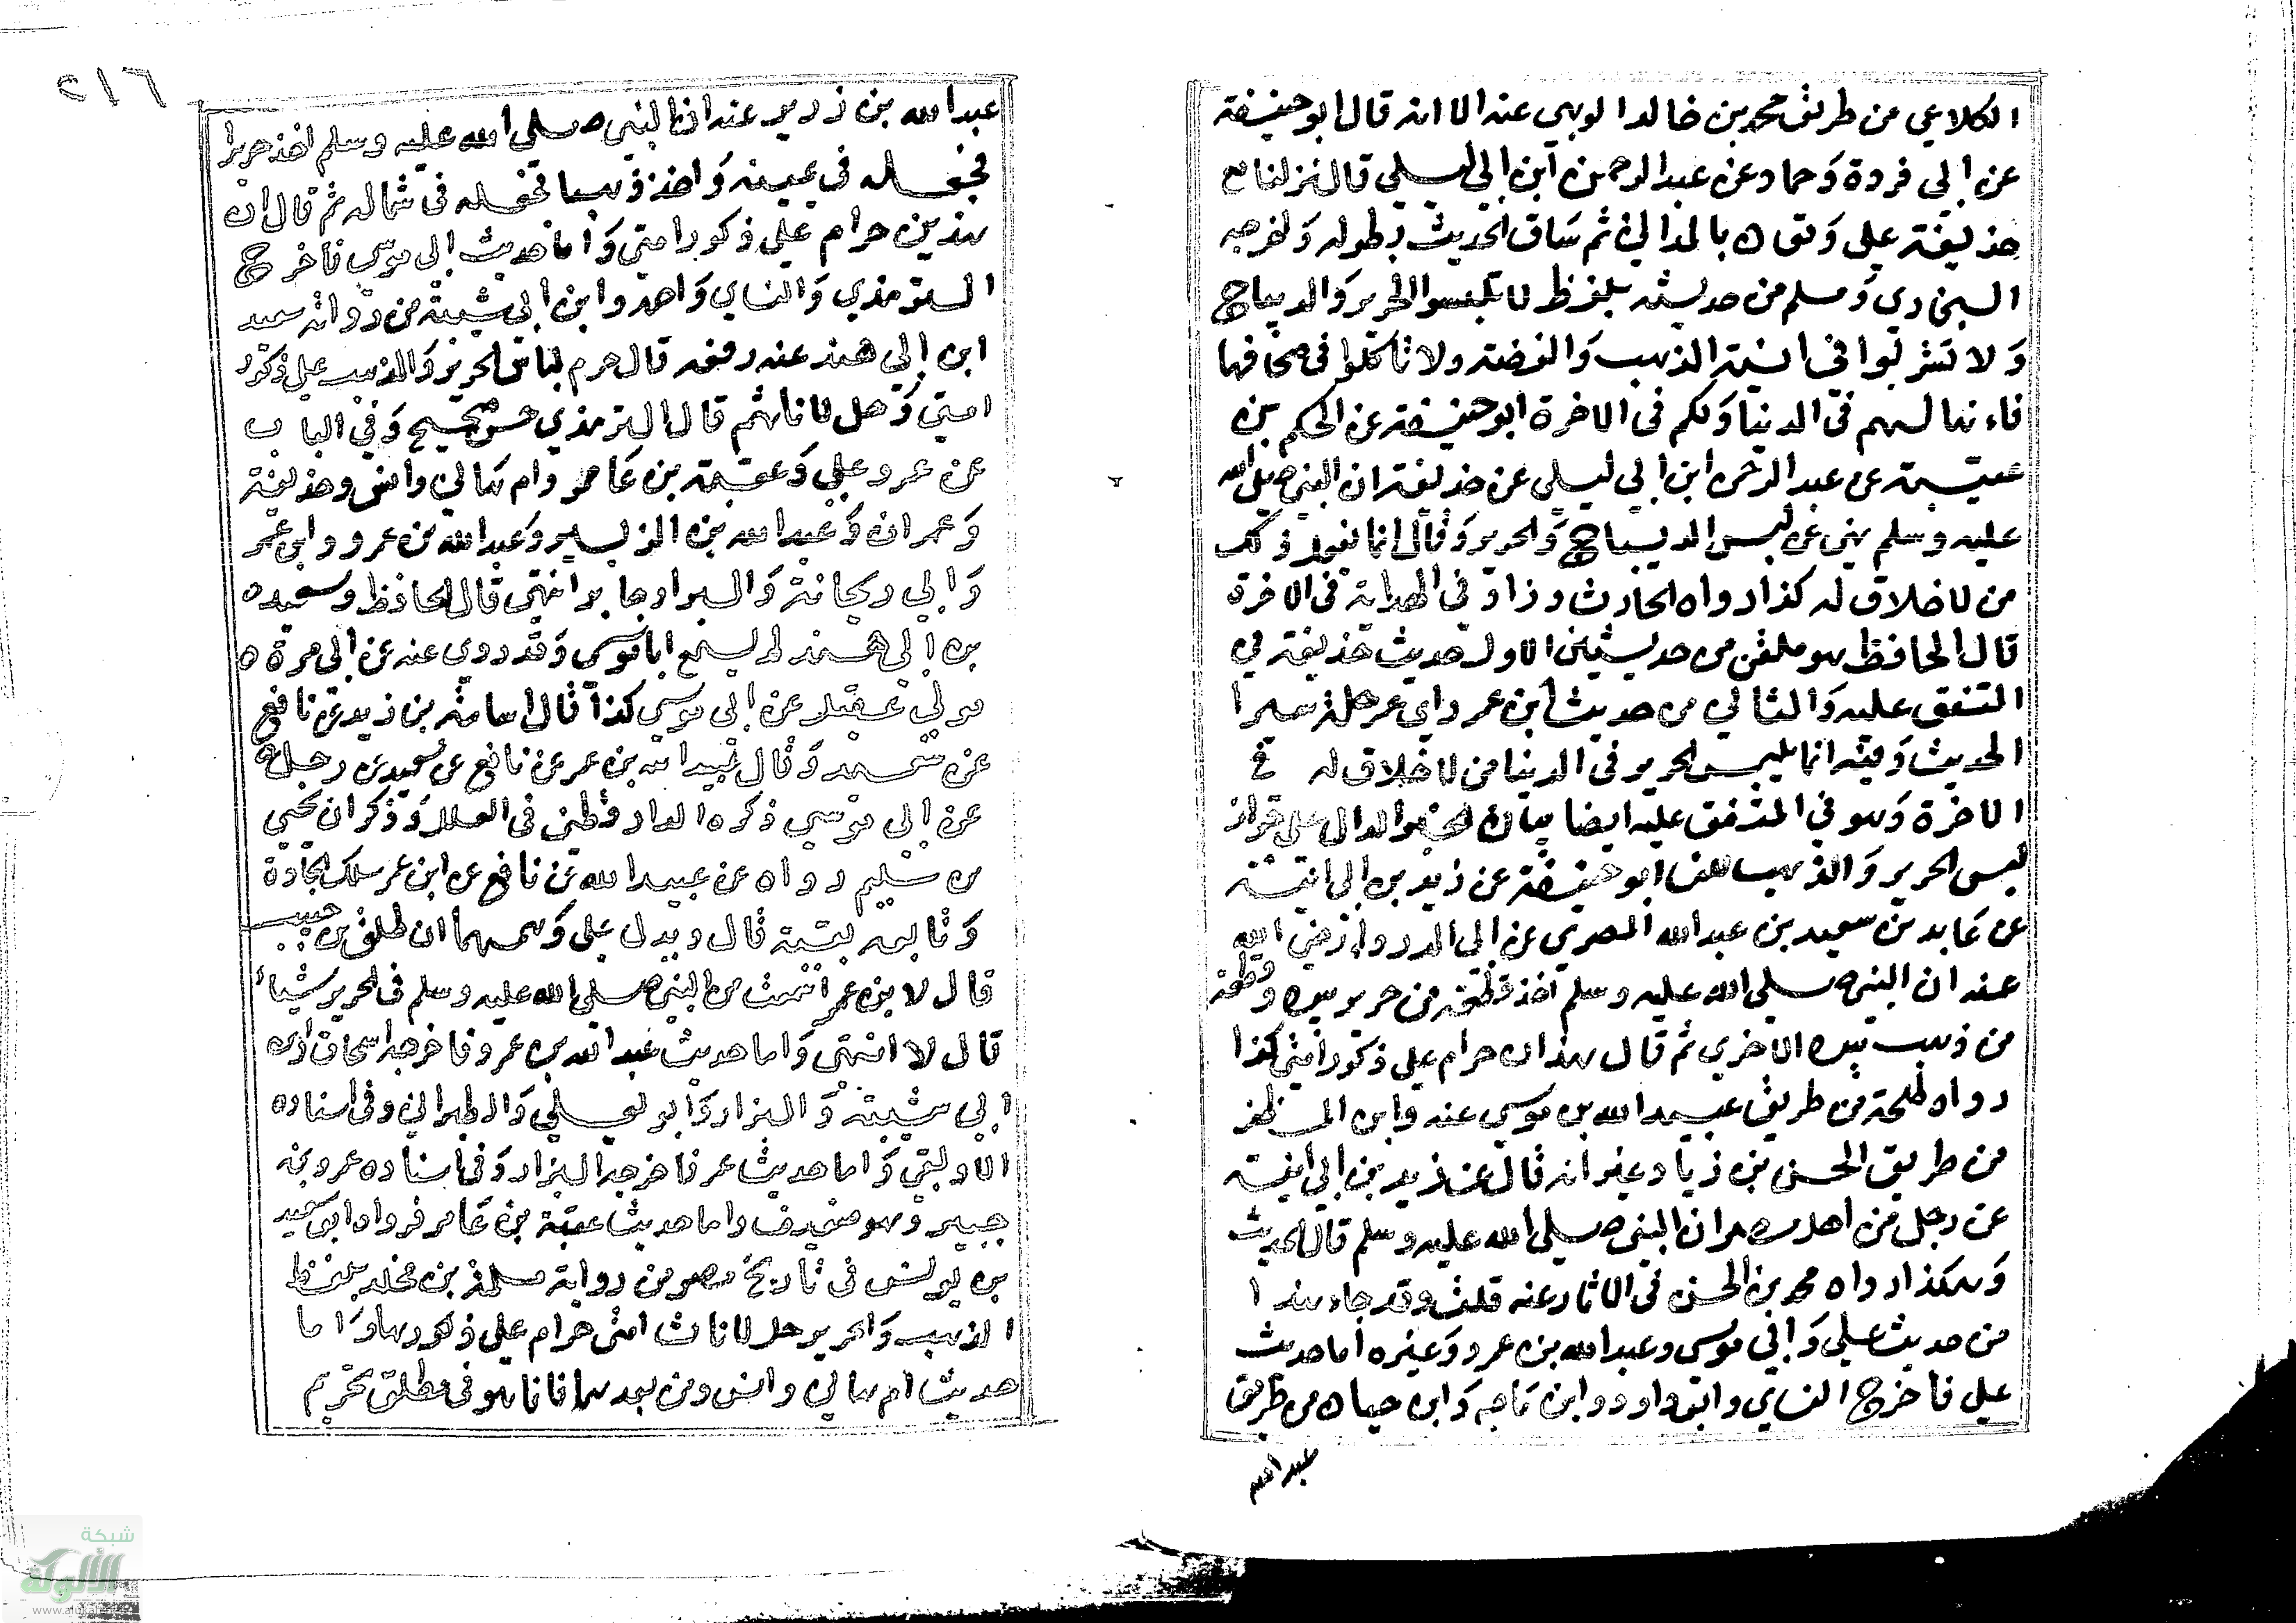 الكلاعي من طريق محمد بن خالد الوهبي عنه الا انه قال ابو حنيفة
عن ابي فروة وحماد عن عبد الرحمن ابن ابي ليلى قال نزلنا مع
حذيفة على دهقان بالمداين ثم ساق الحديث بطوله واخرجه
البخاري ومسلم من حديثه بلفظ لا تلبسوا الحرير والديباج
ولا تشربوا في انية الذهب والفضة ولا تاكلوا في صحافها
فانها لهم في الدنيا ولكم في الاخرة ابو حنيفة عن الحكم بن
عتيبة عن عبد الرحمن ابن ابي ليلى عن حذيفة ان النبي صلى الله
عليه وسلم نهى عن لبس الديباج والحرير وقال انما يفعل ذلك
من لا خلاق له كذا رواه الحارث وزاد في الهداية في الاخرة
قال الحافظ هو ملفق من حديثين الاول حديث حذيفة في
المتفق عليه والثاني من حديث ابن عمر راى عمر حلة سيرا
الحديث وفيه انما يلبس الحرير في الدنيا من لا خلاق له في
الاخرة وهو في المتفق عليه ايضا بيان الخبر الدال على
لبس الحرير والذهب للنسا ابو حنيفة عن زيد بن ابي انيسة
عن عابد بن سعيد بن عبد الله المصري عن ابي الدرداء رضي الله
عنه ان النبي صلى الله عليه وسلم اخذ قطعة من حرير بيده وقطعة
من ذهب بيده الاخرى ثم قال هذان حرام على ذكور امتي كذا
رواه طلحة من طريق عبيد الله بن موسى عنه وابن المظفر
من طريق الحسن بن زياد عنه انه قال عن زيد بن ابي انيسة
عن رجل من اهل مصر ان النبي صلى الله عليه وسلم قال الحديث
وهكذا رواه محمد بن الحسن في الاثار عنه قلت وقد جاء هذا
من حديث علي وابي موسى وعبد الله بن عمرو وغيره اما حديث
علي فاخرج النساي وابو داود وابن ماجه وابن حبان من طريق
عبد الله
٢١٦
عبد الله بن زرير عنه ان النبي صلى الله عليه وسلم اخذ حريرا
فجعله في يمينه واخذ ذهبا فجعله في شماله ثم قال ان
هذين حرام على ذكور امتي واما حديث ابي موسى فاخرج
الترمذي والنساي واحمد وابن ابي شيبة من رواية سعيد
ابن ابي هند عنه رفعه قال حرم لباس الحرير والذهب على ذكور
امتي وحل لاناثهم قال الترمذي حسن صحيح وفي الباب
عن عمر وعلي وعقبة بن عامر وام هاني وانس وحذيفة
وعمران وعبد الله بن الزبير وعبد الله بن عمرو وابن عمر
وابي ريحانة والبراء وجابر انتهى قال الحافظ وسعيد
بن ابي هند لم يسمع ابا موسى وقد روى عنه عن ابي مرة
مولى عقيل عن ابي موسى كذا قال اسامة بن زيد عن نافع
عن سعيد وقال عبيد الله بن عمر عن نافع عن سعيد عن رجل
عن ابي موسى ذكره الدارقطني في العلل وذكر ان يحيى
بن سليم رواه عن عبيد الله عن نافع عن ابن عمر سلك الجادة
وتابعه بقية قال ويدل على وهمهما ان طلق بن حبيب
قال لابن عمر اسمعت من النبي صلى الله عليه وسلم في الحرير شيأ
قال لا انتهى واما حديث عبد الله بن عمرو فاخرجه اسحاق وابن
ابي شيبة والبزار وابو يعلى والطبراني وفي اسناده
الافريقي واما حديث عمر فاخرجه البزار وفي اسناده عمرو بن
جبير وهو ضعيف واما حديث عقبة بن عامر فرواه ابو سعيد
بن يونس في تاريخ مصر من رواية مسلمة بن مخلد بلفظ
الذهب والحرير حل لاناث امتي حرام على ذكورها واما
حديث ام هاني وانس ومن بعدهما فانما هو في مطلق تحريم
شبكة
الألوكة